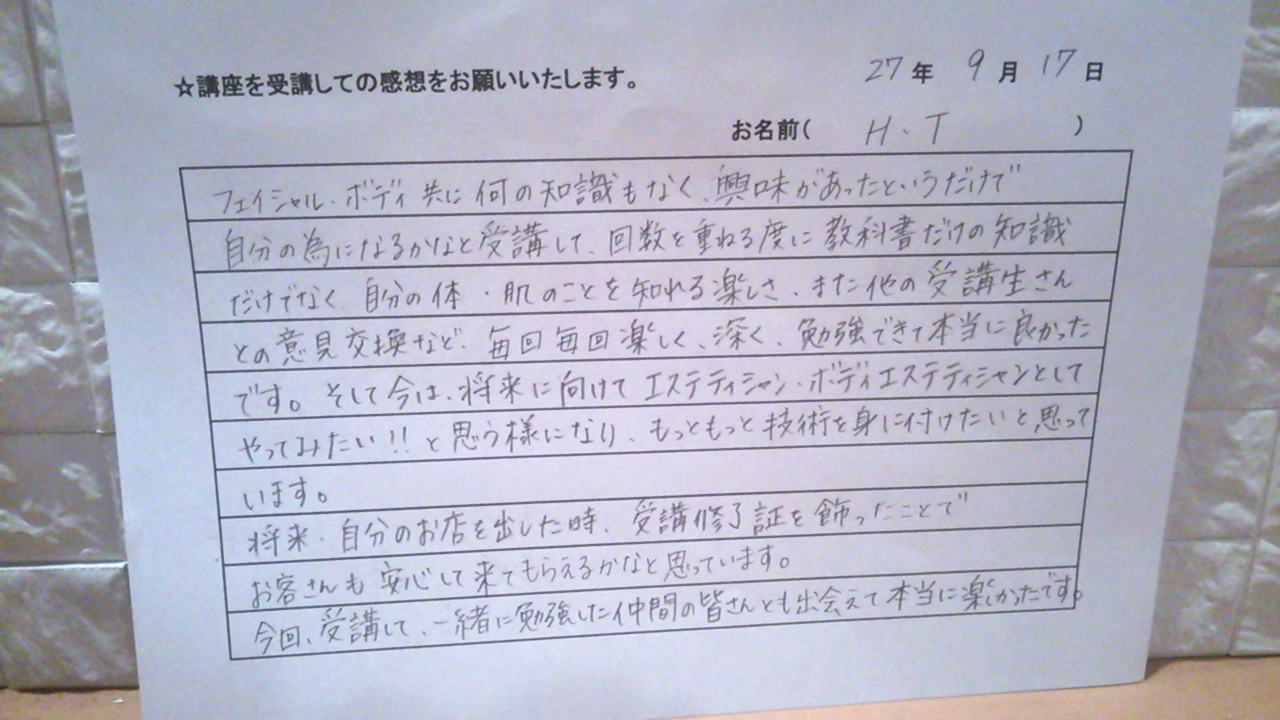 ☆講座を受講しての感想をお願いいたします。
27年 9月 17日
お名前( H.T )
フェイシャル・ボディ共に何の知識もなく、興味があったというだけで
自分の為になるかなと受講して、回数を重ねる度に教科書だけの知識
だけでなく自分の体・肌のことを知れる楽しさ、また他の受講生さん
との意見交換など、毎回毎回楽しく、深く、勉強できて本当に良かった
です。そして今は、将来に向けてエステティシャン・ボディエステティシャンとして
やってみたい!!と思う様になり、もっともっと技術を身に付けたいと思って
います。
将来、自分のお店を出した時、受講修了証を飾ったことで
お客さんも安心して来てもらえるかなと思っています。
今回、受講して、一緒に勉強した仲間の皆さんとも出会えて本当に楽しかったです。